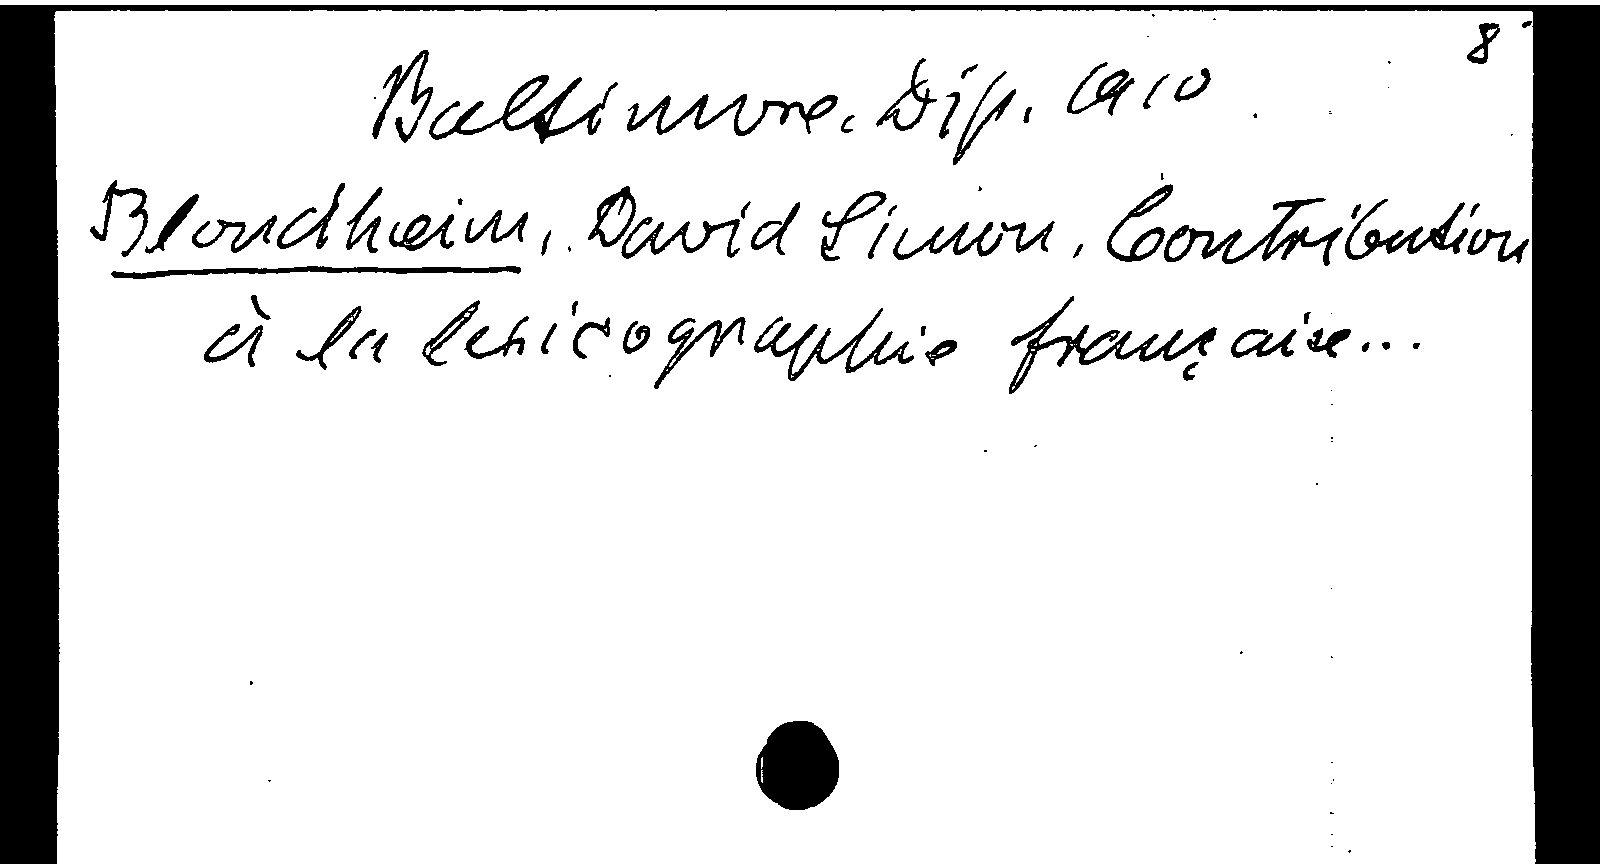 8°
Baltimore. Diss. 1910
Blondheim, David Simon, Contribution
à la lexicographie française...